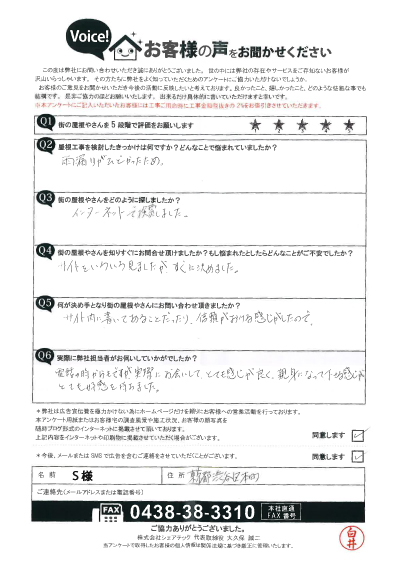 Voice!
お客様の声をお聞かせください
この度は弊社にお問い合わせいただき誠にありがとうございました。世の中には弊社の存在やサービスをご存知ないお客様が
沢山いらっしゃいます。その方たちに弊社をよく知っていただくためのアンケートにご協力いただけないでしょうか。
お客様のご意見をお聞かせいただき今後の活動に反映したいと考えております。良かったこと、嬉しかったこと、どのような些細な事でも
結構です。是非ご協力のほどお願いいたします。出来るだけ具体的に書いていただけますと幸いです。
※本アンケートにご記入いただいたお客様には工事ご用命時に工事金額税抜きの2%をお値引きさせていただきます。
Q1 街の屋根やさんを5段階で評価をお願いします ★ ★ ★ ★ ★
Q2 屋根工事を検討したきっかけは何ですか?どんなことで悩まれていましたか?
雨漏りがひどかったため。
Q3 街の屋根やさんをどのように探しましたか?
インターネットで検索しました。
Q4 街の屋根やさんを知りすぐにお問合せ頂けましたか?もし悩まれたとしたらどんなことがご不安でしたか?
サイトをいろいろ見ましたが すぐに決めました。
Q5 何が決め手となり街の屋根やさんにお問い合わせ頂きましたか?
サイト内に書いてあることだったり、信頼がおける感じがしたので。
Q6 実際に弊社担当者がお伺いしていかがでしたか?
電話の時からもですが実際にお会いして、とても感じが良く、親身になって下さる感じが
とても好感を持ちました。
*弊社は広告宣伝費を極力かけない為にホームページだけを頼りにお客様への営業活動を行っております。
本アンケート用紙またはお客様宅の調査風景や施工状況、お客様の顔写真を
随時ブログ形式のインターネットに掲載させて頂いております。
上記内容をインターネットや印刷物に掲載させていただく場合がございます。 同意します ☑
*今後、メールまたはSMSで広告を含むご連絡をさせていただくことがございます。 同意します ☑
名前 S様 住所
ご連絡先(メールアドレスまたは電話番号)
FAX 0438-38-3310 本社直通 FAX番号
ご協力ありがとうございました。
株式会社シェアテック 代表取締役 大久保 誠二
当アンケートで取得したお客様の個人情報は関係法規に基づき厳正に管理いたします。
白井